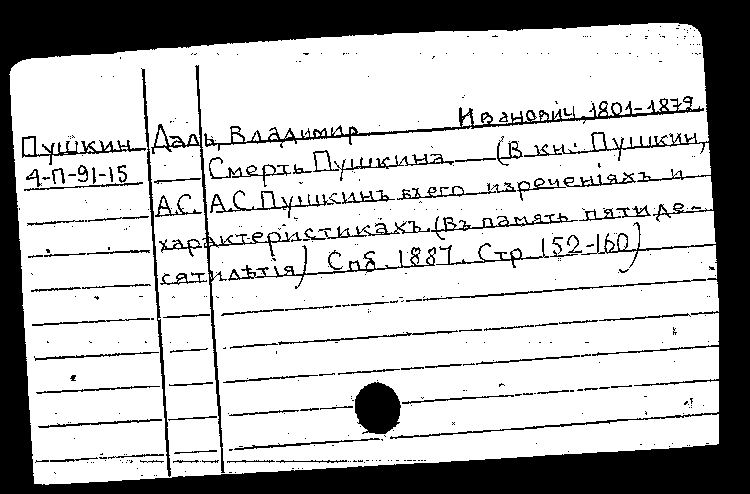 Пушкин Даль, Владимир Иванович, 1801-1879
4-П-91-15 Смерть Пушкина. (В кн.: Пушкин,
А.С. А.С. Пушкинъ въ его изреченіяхъ и
характеристикахъ. (Въ память пятиде-
сятилѣтія) Спб. 1887. Стр. 152-160)